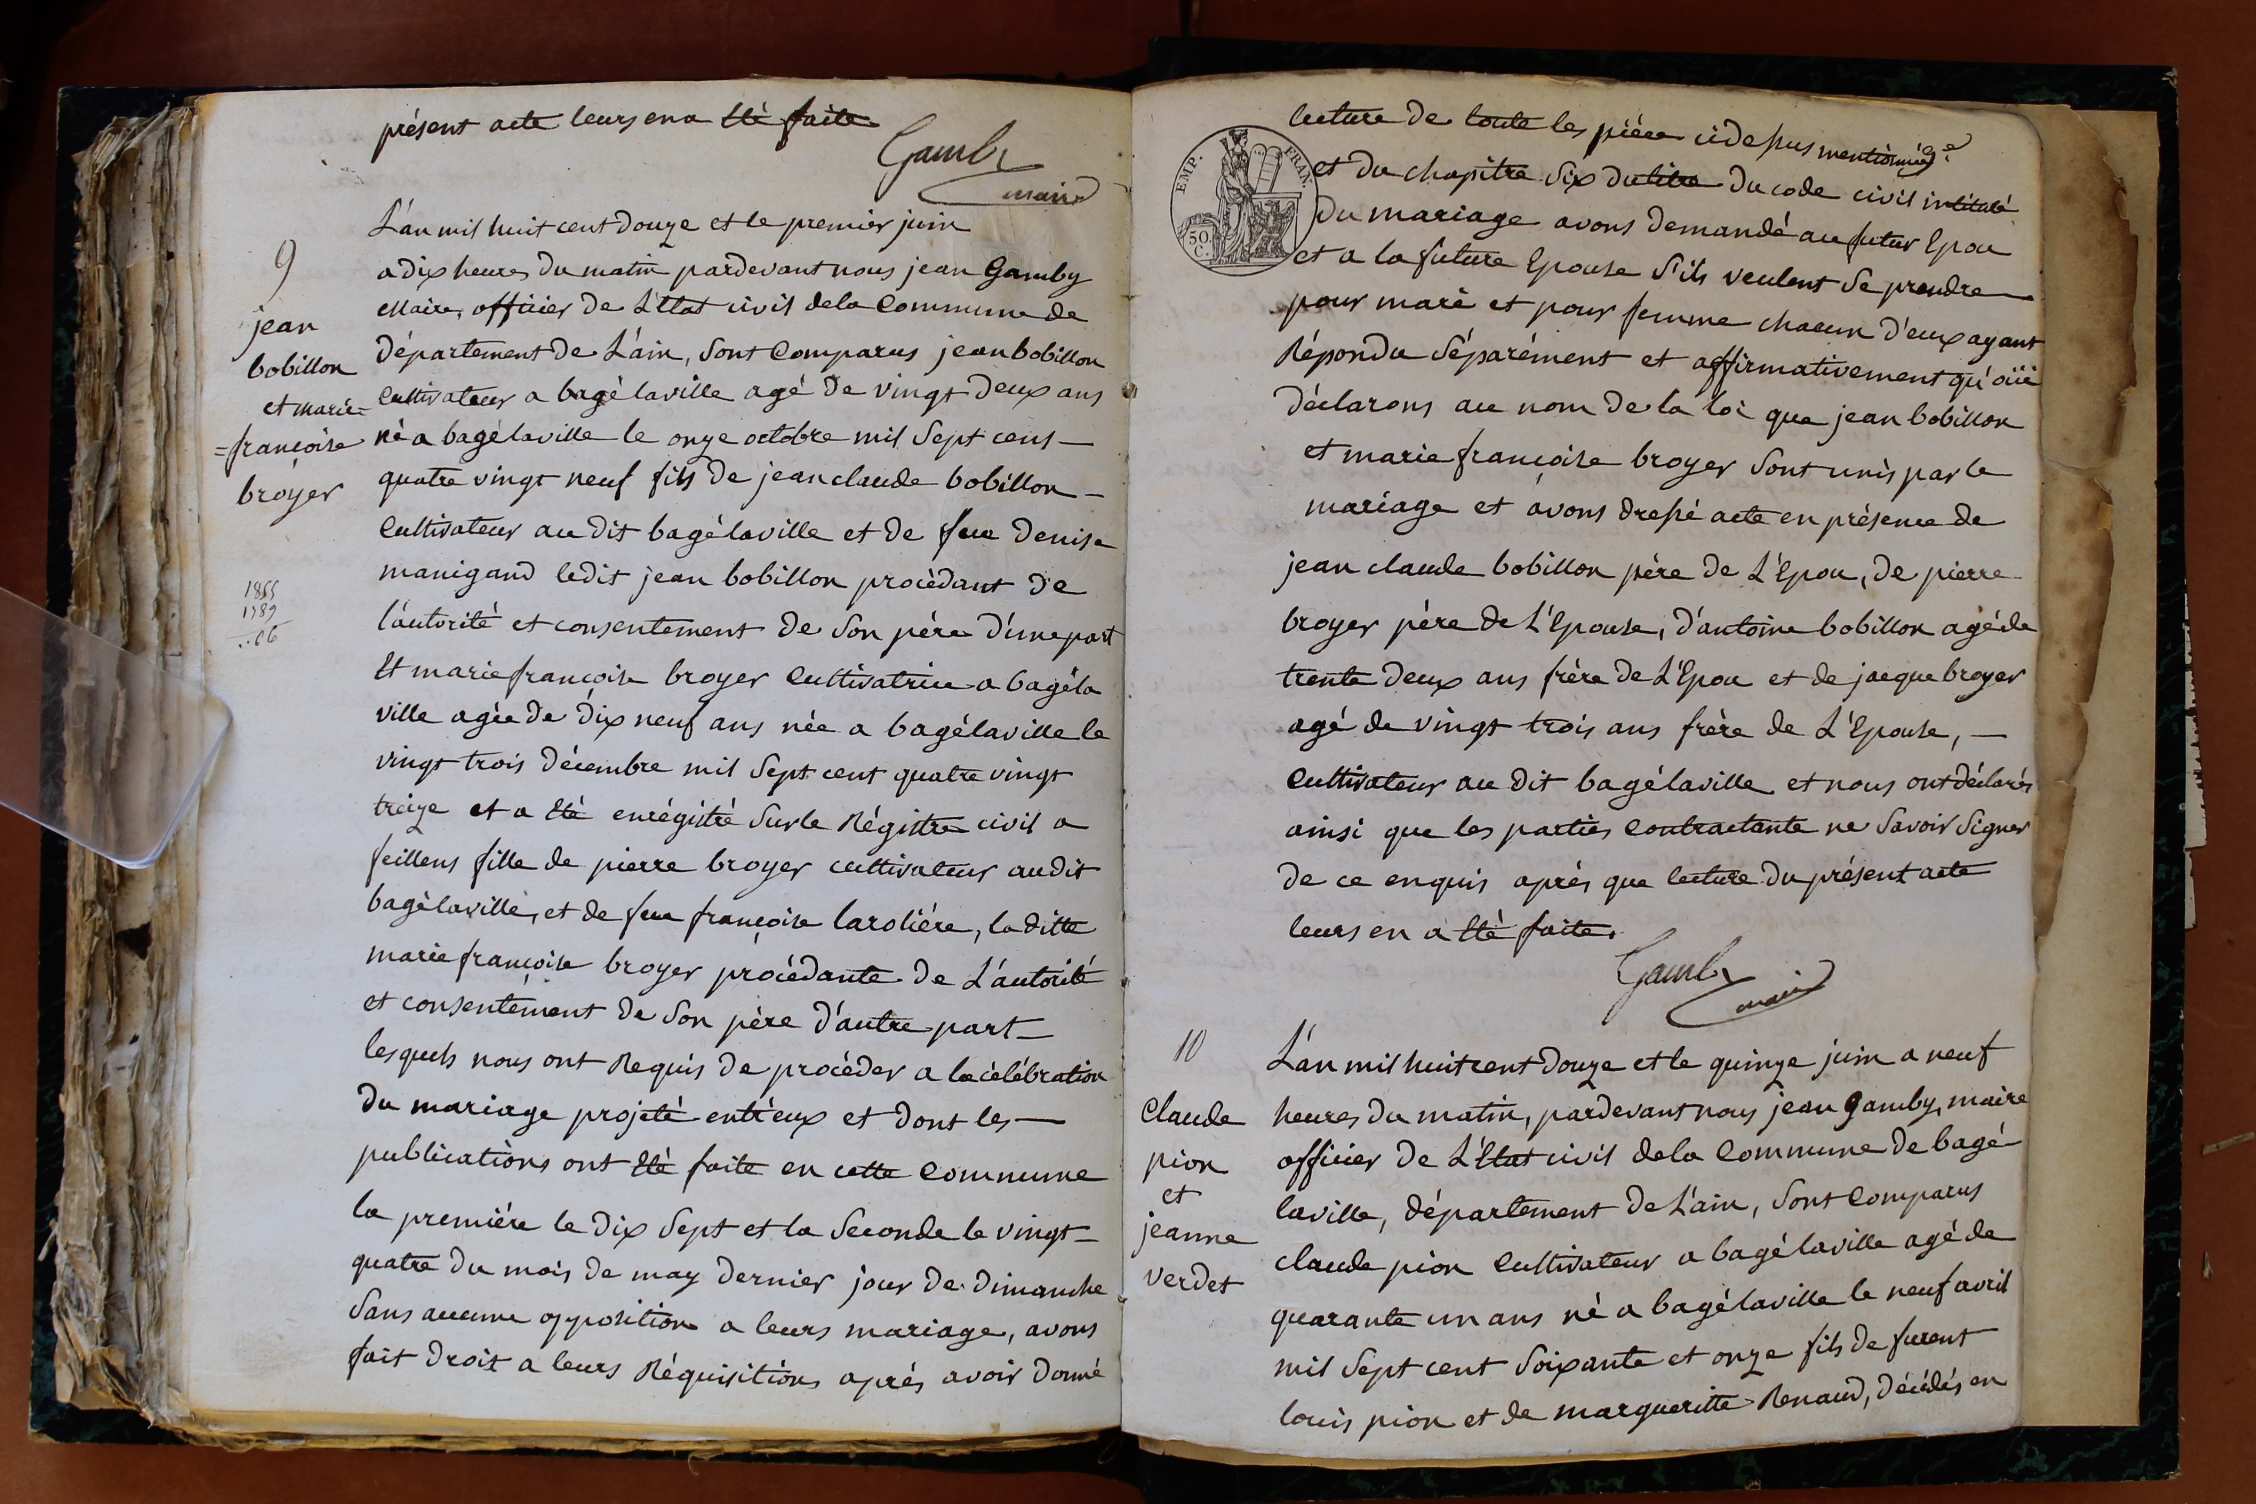 présent acte leurs en a été faite
Gamby
maire
9
jean
bobillon
et marie=
=françoise
broyer
1855
1789
..06
L'an mil huit cent douze et le premier juin
a dix heures du matin pardevant nous jean Gamby
Maire, officier de L'Etat civil de la Commune de
département de L'ain, Sont Comparus jean bobillon
Cultivateur a bagélaville agé de vingt deux ans
né a bagélaville le onze octobre mil Sept cens —
quatre vingt neuf fils de jean claude bobillon —
Cultivateur au dit bagélaville et de feue denise
manigand ledit jean bobillon procèdant de
l'autorité et consentement de Son père d'une part
Et marie françoise broyer Cultivatrice a bagéla
ville agée de dix neuf ans née a bagélaville le
vingt trois décembre mil Sept cent quatre vingt
treize et a été enrégistré Sur le Régistre civil a
feillens fille de pierre broyer cultivateur au dit
bagélaville, et de feue françoise laroliére, la ditte
marie françoise broyer procédante de L'autorité
et consentement de Son père d'autre part —
lesquels nous ont Requis de procéder a la célébration
du mariage projeté entr'eux et dont les —
publications ont été faite en cette Commune
la premiére le dix Sept et la Seconde le vingt —
quatre du mois de may dernier jour de dimanche
Sans aucune opposition a leurs mariage, avons
fait droit a leurs Réquisitions aprés avoir donné
EMP. FRAN.
50
C.
lecture de toute les piéce cidessus mentionnée
et du chapitre Six du titre du code civil intitulé
du mariage avons demandé au futur Epou
et a la future Epouse S'ils veulent Se prendre
pour mari et pour femme chacun d'eux ayant
Répondu Séparément et affirmativement qu'oüi
déclarons au nom de la loi que jean bobillon
et marie françoise broyer Sont unis par le
mariage et avons dressé acte en présence de
jean claude bobillon pére de L'Epou, de pierre
broyer pére de L'Epouse, d'antoine bobillon agé de
trente deux ans frére de L'Epou et de jacque broyer
agé de vingt trois ans frére de L'Epouse, —
Cultivateur au dit bagélaville et nous ont déclarés
ainsi que les parties Contractante ne Savoir Signer
de ce enquis aprés que lecture du présent acte
leurs en a été faite.
Gamby
maire
10
Claude
pion
et
jeanne
verdet
L'an mil huit cent douze et le quinze juin a neuf
heures du matin, pardevant nous jean Gamby, maire
officier de L'Etat civil de la Commune de bagé
laville, département de L'ain, Sont Comparus
claude pion Cultivateur a bagélaville agé de
quarante un ans né a bagélaville le neuf avril
mil Sept cent Soixante et onze fils de furent
louis pion et de margueritte Renaud, décédés en